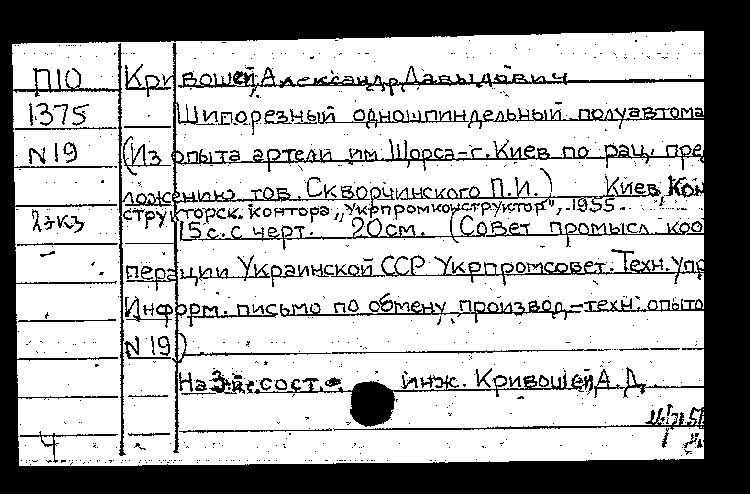 П10 Кривошей, Александр Давыдович
1375 Шипорезный одношпиндельный полуавтома
N 19 (Из опыта артели им. Щорса-г. Киев по рац. пре
ложению тов. Скворчинского П.И.) Киев, Кон
структорск. контора „Укрпромконструктор", 1955.
2 экз 15 с. с черт. 20см. (Совет промысл. коо
перации Украинской ССР Укрпромсовет. Техн. упр
Информ. письмо по обмену производ.-техн. опыто
N 19)
На 3-й с. сост. инж. Кривошей А. Д.
4